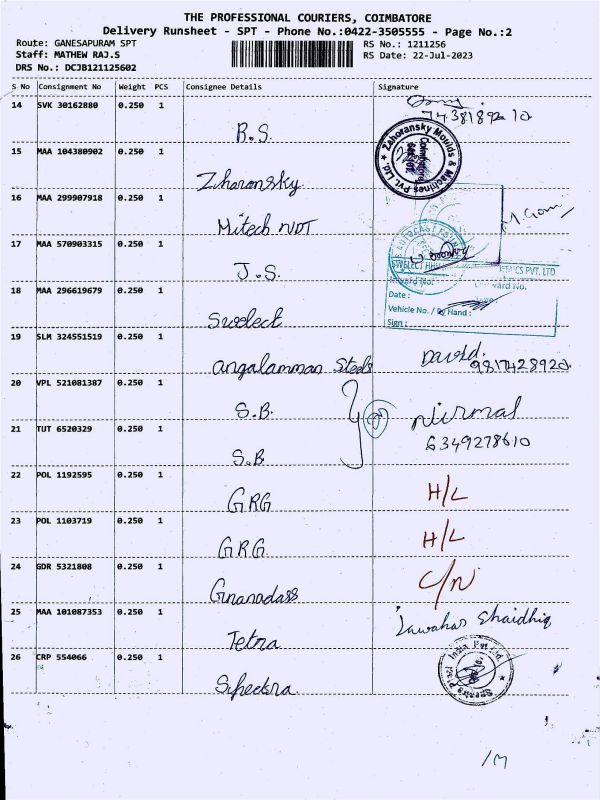 THE PROFESSIONAL COURIERS, COIMBATORE
Delivery Runsheet - SPT - Phone No.:0422-3505555 - Page No.:2
Route: GANESAPURAM SPT
RS No.: 1211256
Staff: MATHEW RAJ.S
RS Date: 22-Jul-2023
DRS No.: DCJB121125602
S No Consignment No Weight PCS Consignee Details Signature
14 SVK 30162880 0.250 1
R.S.
15 MAA 104380902 0.250 1
Zahoransky Moulds & Machines Pvt. Ltd.
Zhoronsky.
16 MAA 299907918 0.250 1
Mitech NDT
M.Gomy
17 MAA 570903315 0.250 1
J.S.
18 MAA 296619679 0.250 1
Date :
Vehicle No. / By Hand :
Sign :
Swelect
19 SLM 324551519 0.250 1
angalamman Steels
David.
20 VPL 521081387 0.250 1
S.B.
Nirmal
21 TUT 6520329 0.250 1
6349278610
S.B
22 POL 1192595 0.250 1
GRG
H/L
23 POL 1103719 0.250 1
GRG.
H/L
24 GDR 5321808 0.250 1
Gnanadass
C/N
25 MAA 101087353 0.250 1
Jawahar Shaidhiq
Tetra
26 CRP 554066 0.250 1
India Pvt Ltd.